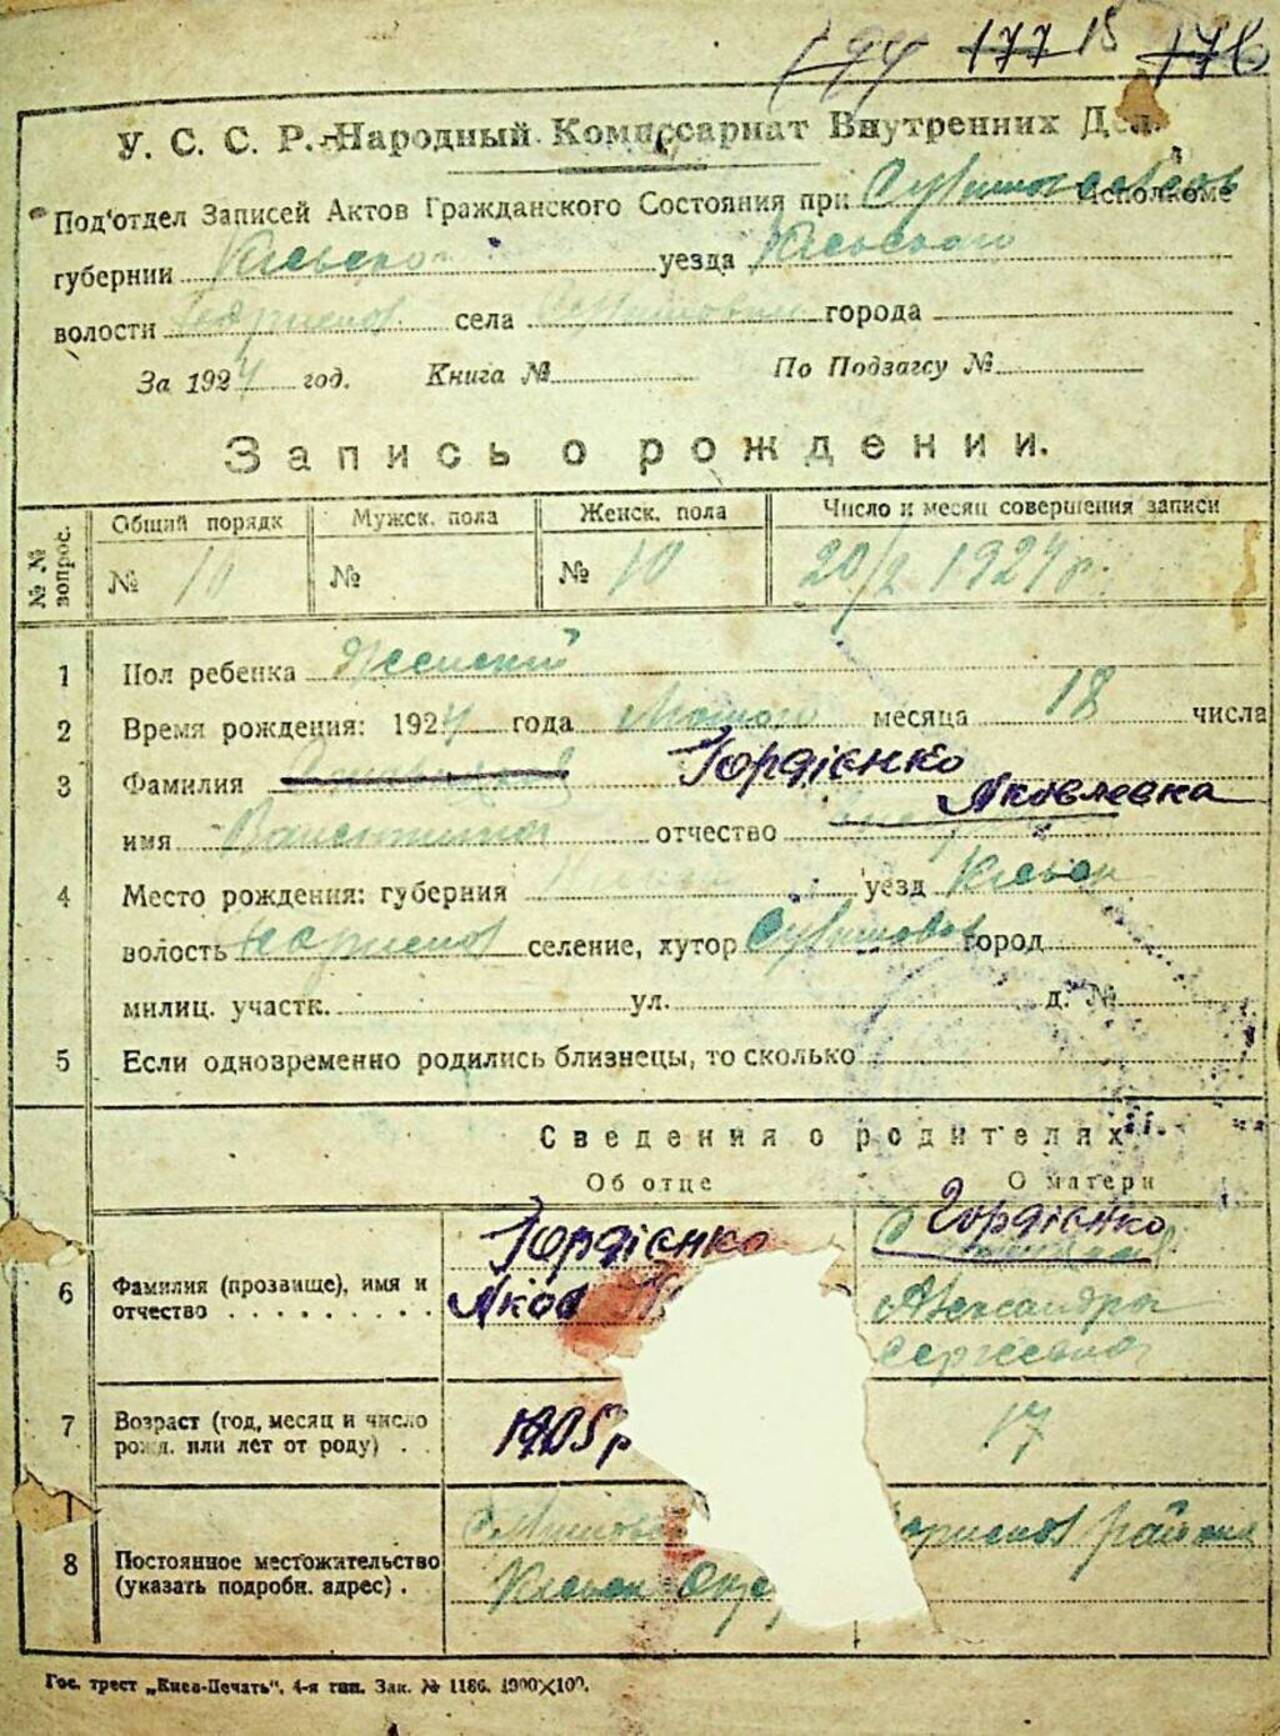 177 18 176
У. С. С. Р. Народный Комиссариат Внутренних Дел.
Под'отдел Записей Актов Гражданского Состояния при Исполкоме
губернии уезда Киевского
волости села города
За 1924 год. Книга № По Подзагсу №
Запись о рождении.
№ № вопрос. Общий порядк Мужск. пола Женск. пола Число и месяц совершения записи
№ 10 № № 10 20/2 1924 р.
1 Пол ребенка Женский
2 Время рождения: 1924 года Лютого месяца 18 числа
3 Фамилия Гордієнко
Яковлевка
имя Валентина отчество
4 Место рождения: губерния уезд Киевск
волость селение, хутор город
милиц. участк. ул. д. №
5 Если одновременно родились близнецы, то сколько
Сведения о родителях
Об отце О матери
6 Фамилия (прозвище), имя и отчество Гордієнко Яков Гордієнко Александра Сергієвна
7 Возраст (год, месяц и число рожд. или лет от роду) 1905 р 17
8 Постоянное местожительство (указать подробн. адрес) района
Киевск Окр
Гос. трест „Киев-Печать“, 4-я тип. Зак. № 1186. 1900×100.